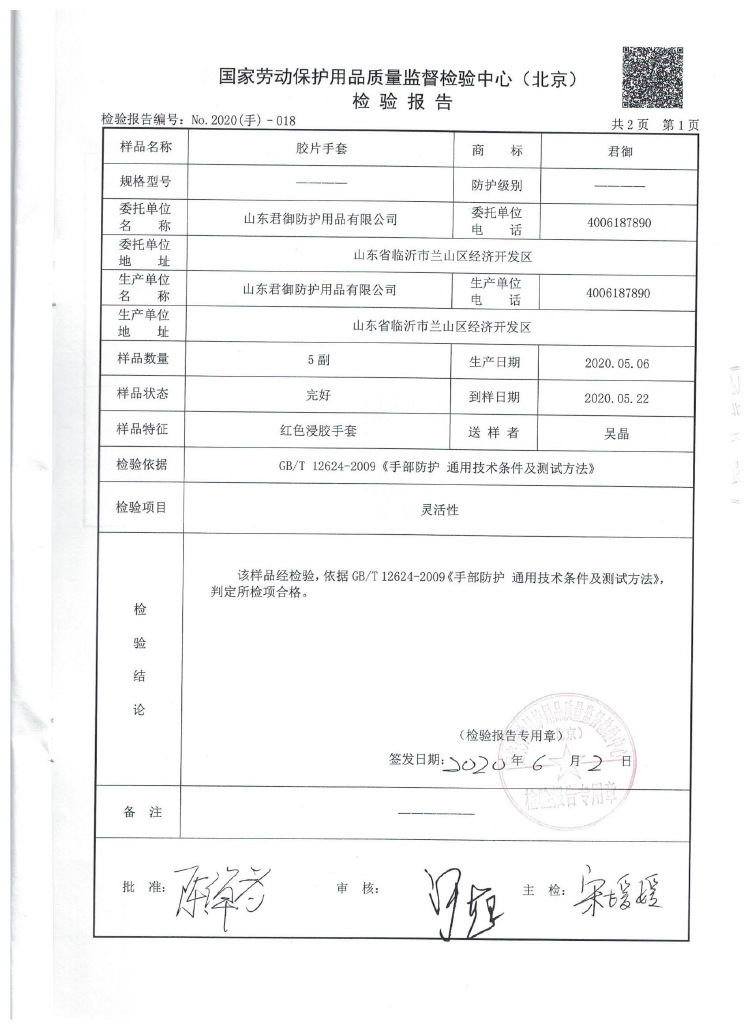 国家劳动保护用品质量监督检验中心（北京）
检 验 报 告
检验报告编号：No.2020(手)-018
共 2 页 第 1 页
样品名称 胶片手套 商 标 君御
规格型号 ———— 防护级别 ————
委托单位名 称 山东君御防护用品有限公司 委托单位电 话 4006187890
委托单位地 址 山东省临沂市兰山区经济开发区
生产单位名 称 山东君御防护用品有限公司 生产单位电 话 4006187890
生产单位地 址 山东省临沂市兰山区经济开发区
样品数量 5 副 生产日期 2020.05.06
样品状态 完好 到样日期 2020.05.22
样品特征 红色浸胶手套 送 样 者 吴晶
检验依据 GB/T 12624-2009《手部防护 通用技术条件及测试方法》
检验项目 灵活性
检验结论
该样品经检验，依据 GB/T 12624-2009《手部防护 通用技术条件及测试方法》，
判定所检项合格。
（检验报告专用章）
签发日期：2020 年 6 月 2 日
检验报告专用章
备 注 ——————
批 准： 审 核： 主 检：宋媛媛